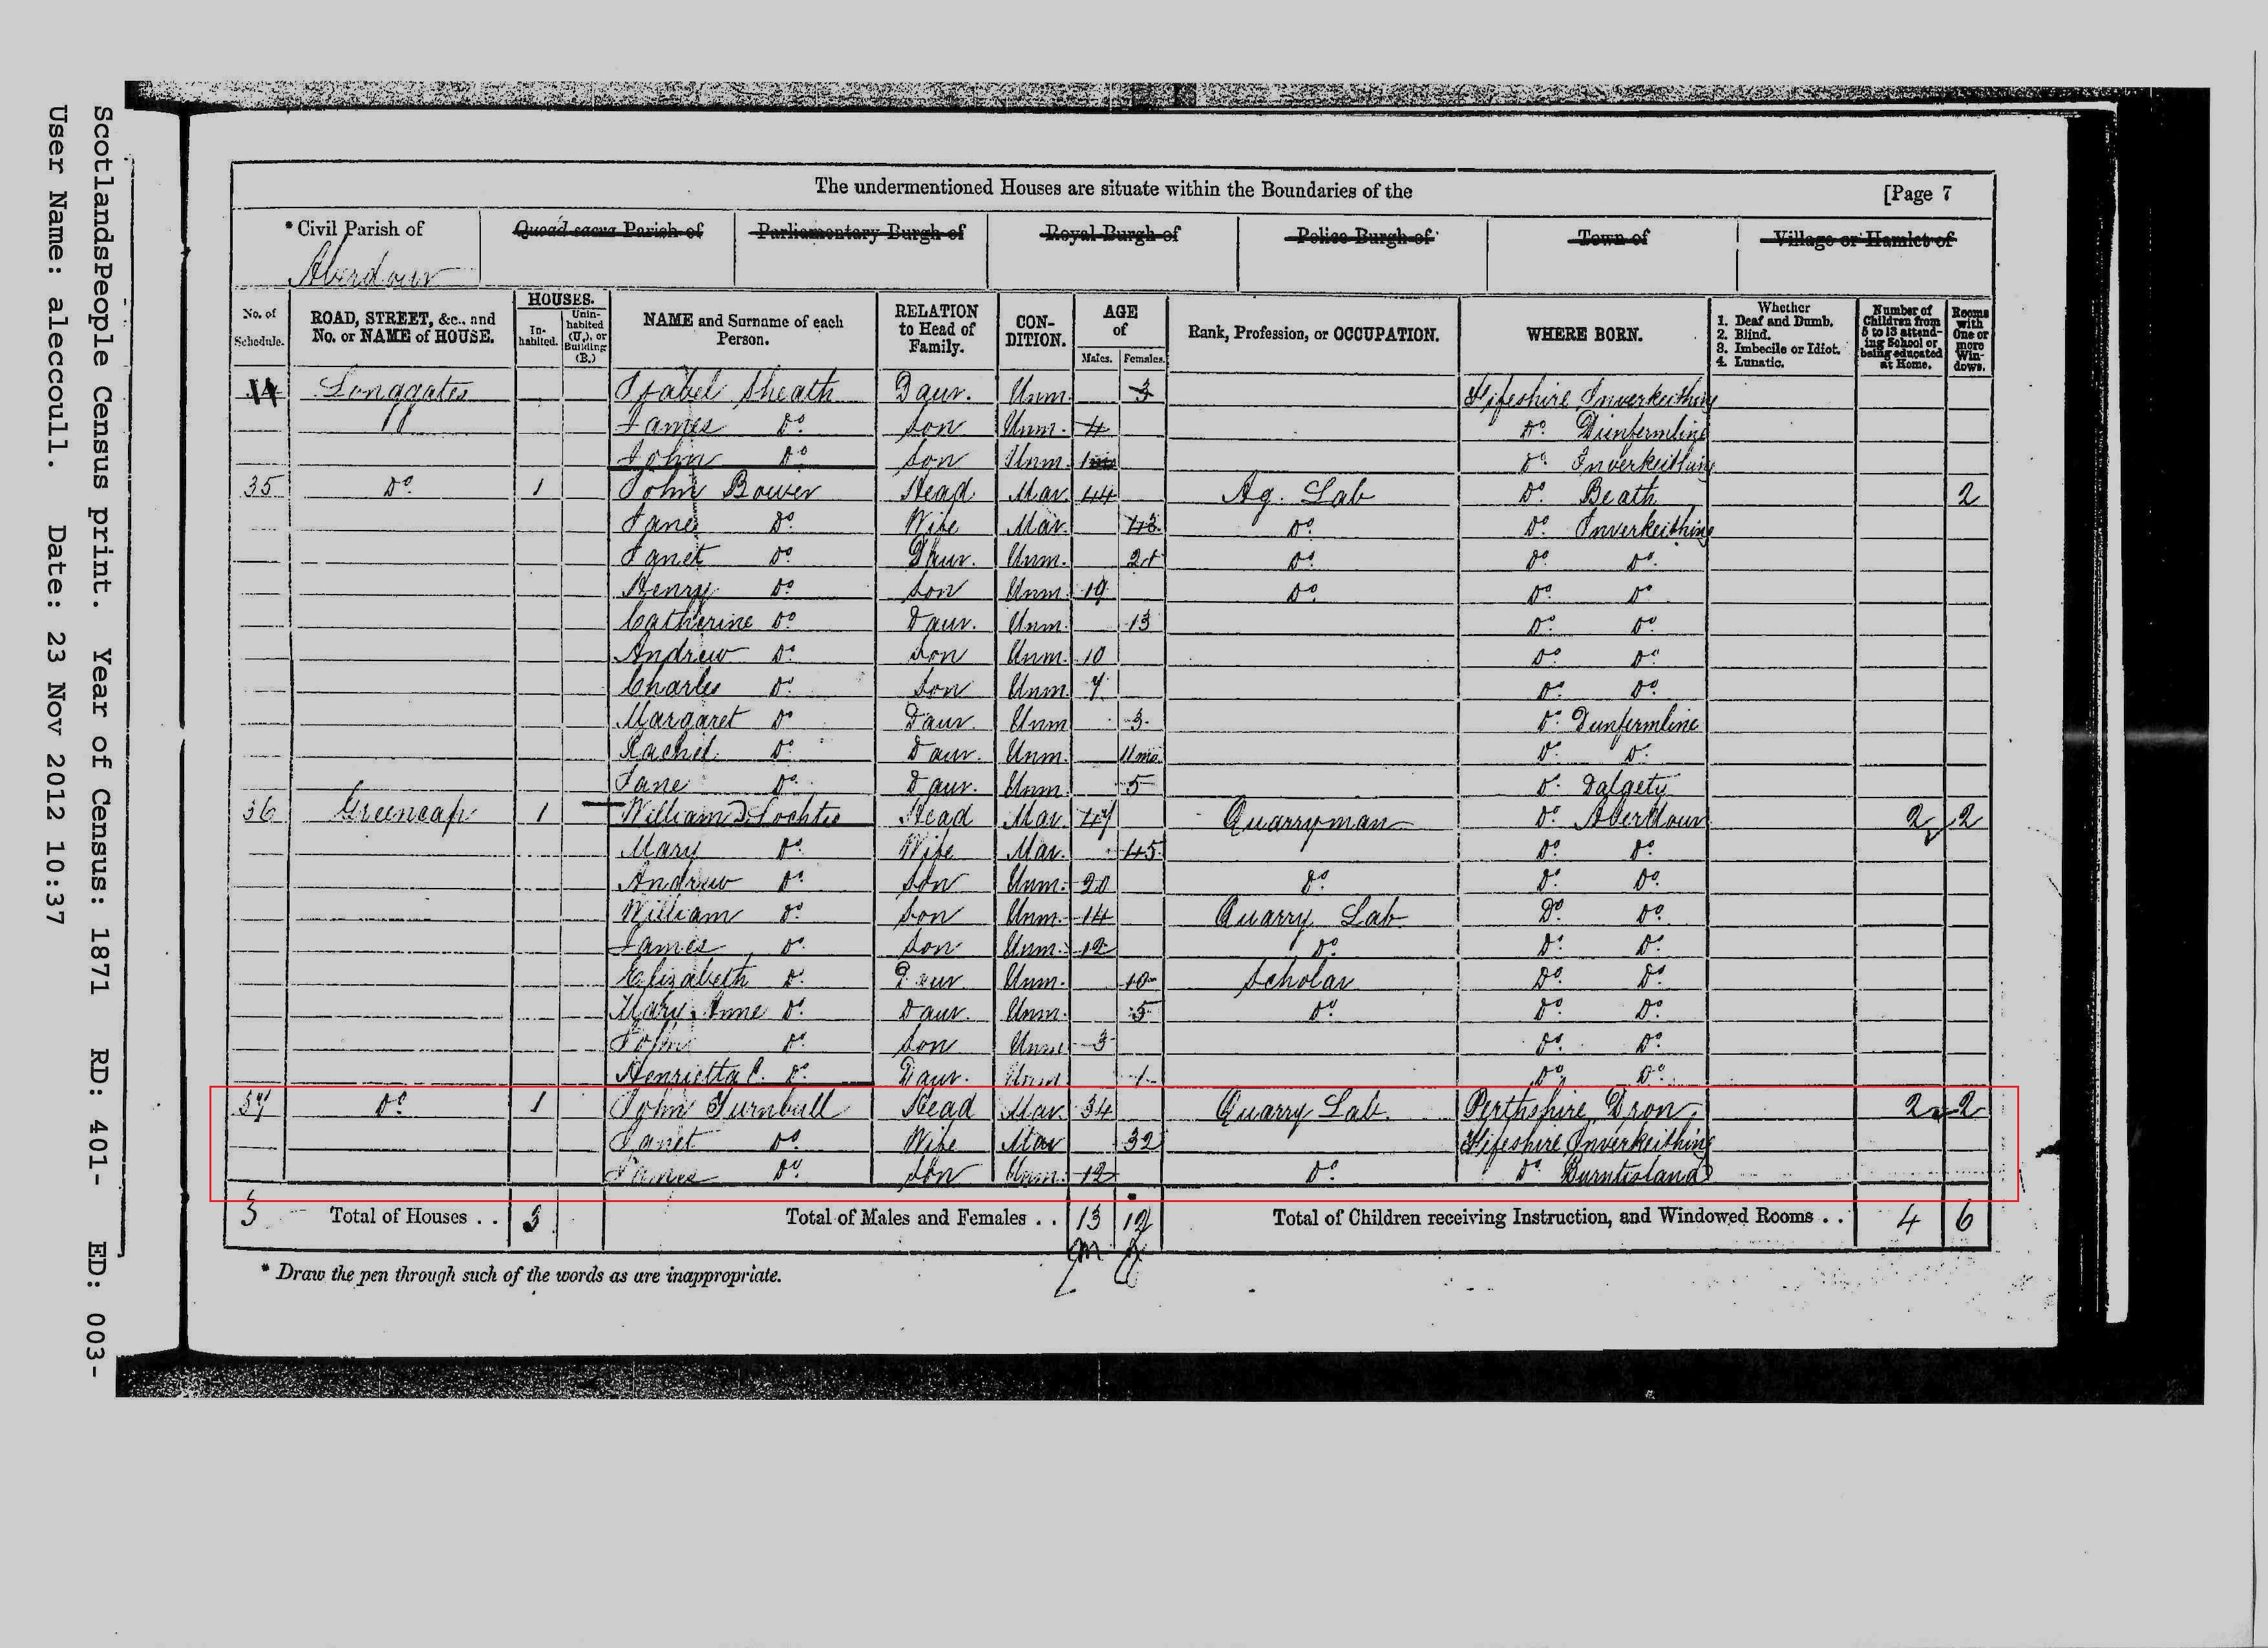 ScotlandsPeople Census print. Year of Census: 1871 RD: 401- ED: 003-
User Name: aleccoull. Date: 23 Nov 2012 10:37
The undermentioned Houses are situate within the Boundaries of the [Page 7
* Civil Parish of Quoad sacra Parish of Parliamentary Burgh of Royal Burgh of Police Burgh of Town of Village or Hamlet of
Aberdour
No. of Schedule. ROAD, STREET, &c., and No. or NAME of HOUSE. HOUSES. Inhabited. Uninhabited (U.), or Building (B.) NAME and Surname of each Person. RELATION to Head of Family. CONDITION. AGE of Males. Females. Rank, Profession, or OCCUPATION. WHERE BORN. Whether 1. Deaf and Dumb. 2. Blind. 3. Imbecile or Idiot. 4. Lunatic. Number of Children from 5 to 13 attending School or being educated at Home. Rooms with One or more Windows.
Longgates Isabel Sheath Daur. Unm. 3 Fifeshire Inverkeithing
James Do Son Unm. 4 Do Dunfermline
John Do Son Unm. 1 mo Do Inverkeithing
35 Do 1 John Bower Head Mar. 44 Ag. Lab Do Beath 2
Jane Do Wife Mar. 43 Do Do Inverkeithing
Janet Do Daur. Unm. 21 Do Do Do
Henry Do Son Unm. 19 Do Do Do
Catherine Do Daur. Unm. 13 Do Do
Andrew Do Son Unm. 10 Do Do
Charles Do Son Unm. 7 Do Do
Margaret Do Daur Unm 3 Do Dunfermline
Rachel Do Daur. Unm. 11 mo. Do Do
Jane Do Daur. Unm. 5 Do Dalgety
36 Greencap 1 William D. Lochtie Head Mar. 47 Quarryman Do Aberdour 2 2
Mary Do Wife Mar. 45 Do Do
Andrew Do Son Unm. 20 Do Do Do
William Do Son Unm. 14 Quarry Lab Do Do
James Do Son Unm. 12 Do Do Do
Elizabeth Do Daur Unm. 10 Scholar Do Do
Mary Anne Do Daur. Unm. 5 Do Do Do
John Do Son Unm 3 Do Do
Henrietta C. Do Daur. Unm 1 Do Do
37 Do 1 John Turnbull Head Mar. 34 Quarry Lab. Perthshire Dron. 2 2
Janet Do Wife Mar 32 Fifeshire Inverkeithing
James Do Son Unm. 12 Do Do Burntisland
3 Total of Houses . . 3 Total of Males and Females . . 13 12 Total of Children receiving Instruction, and Windowed Rooms . . 4 6
* Draw the pen through such of the words as are inappropriate.